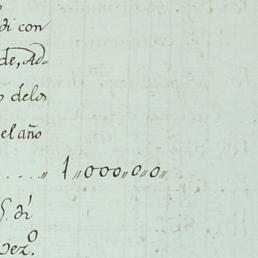 di con
de, Ad-
o delos
el año
..... „ 1„000„0„0„
S. di
vez.º